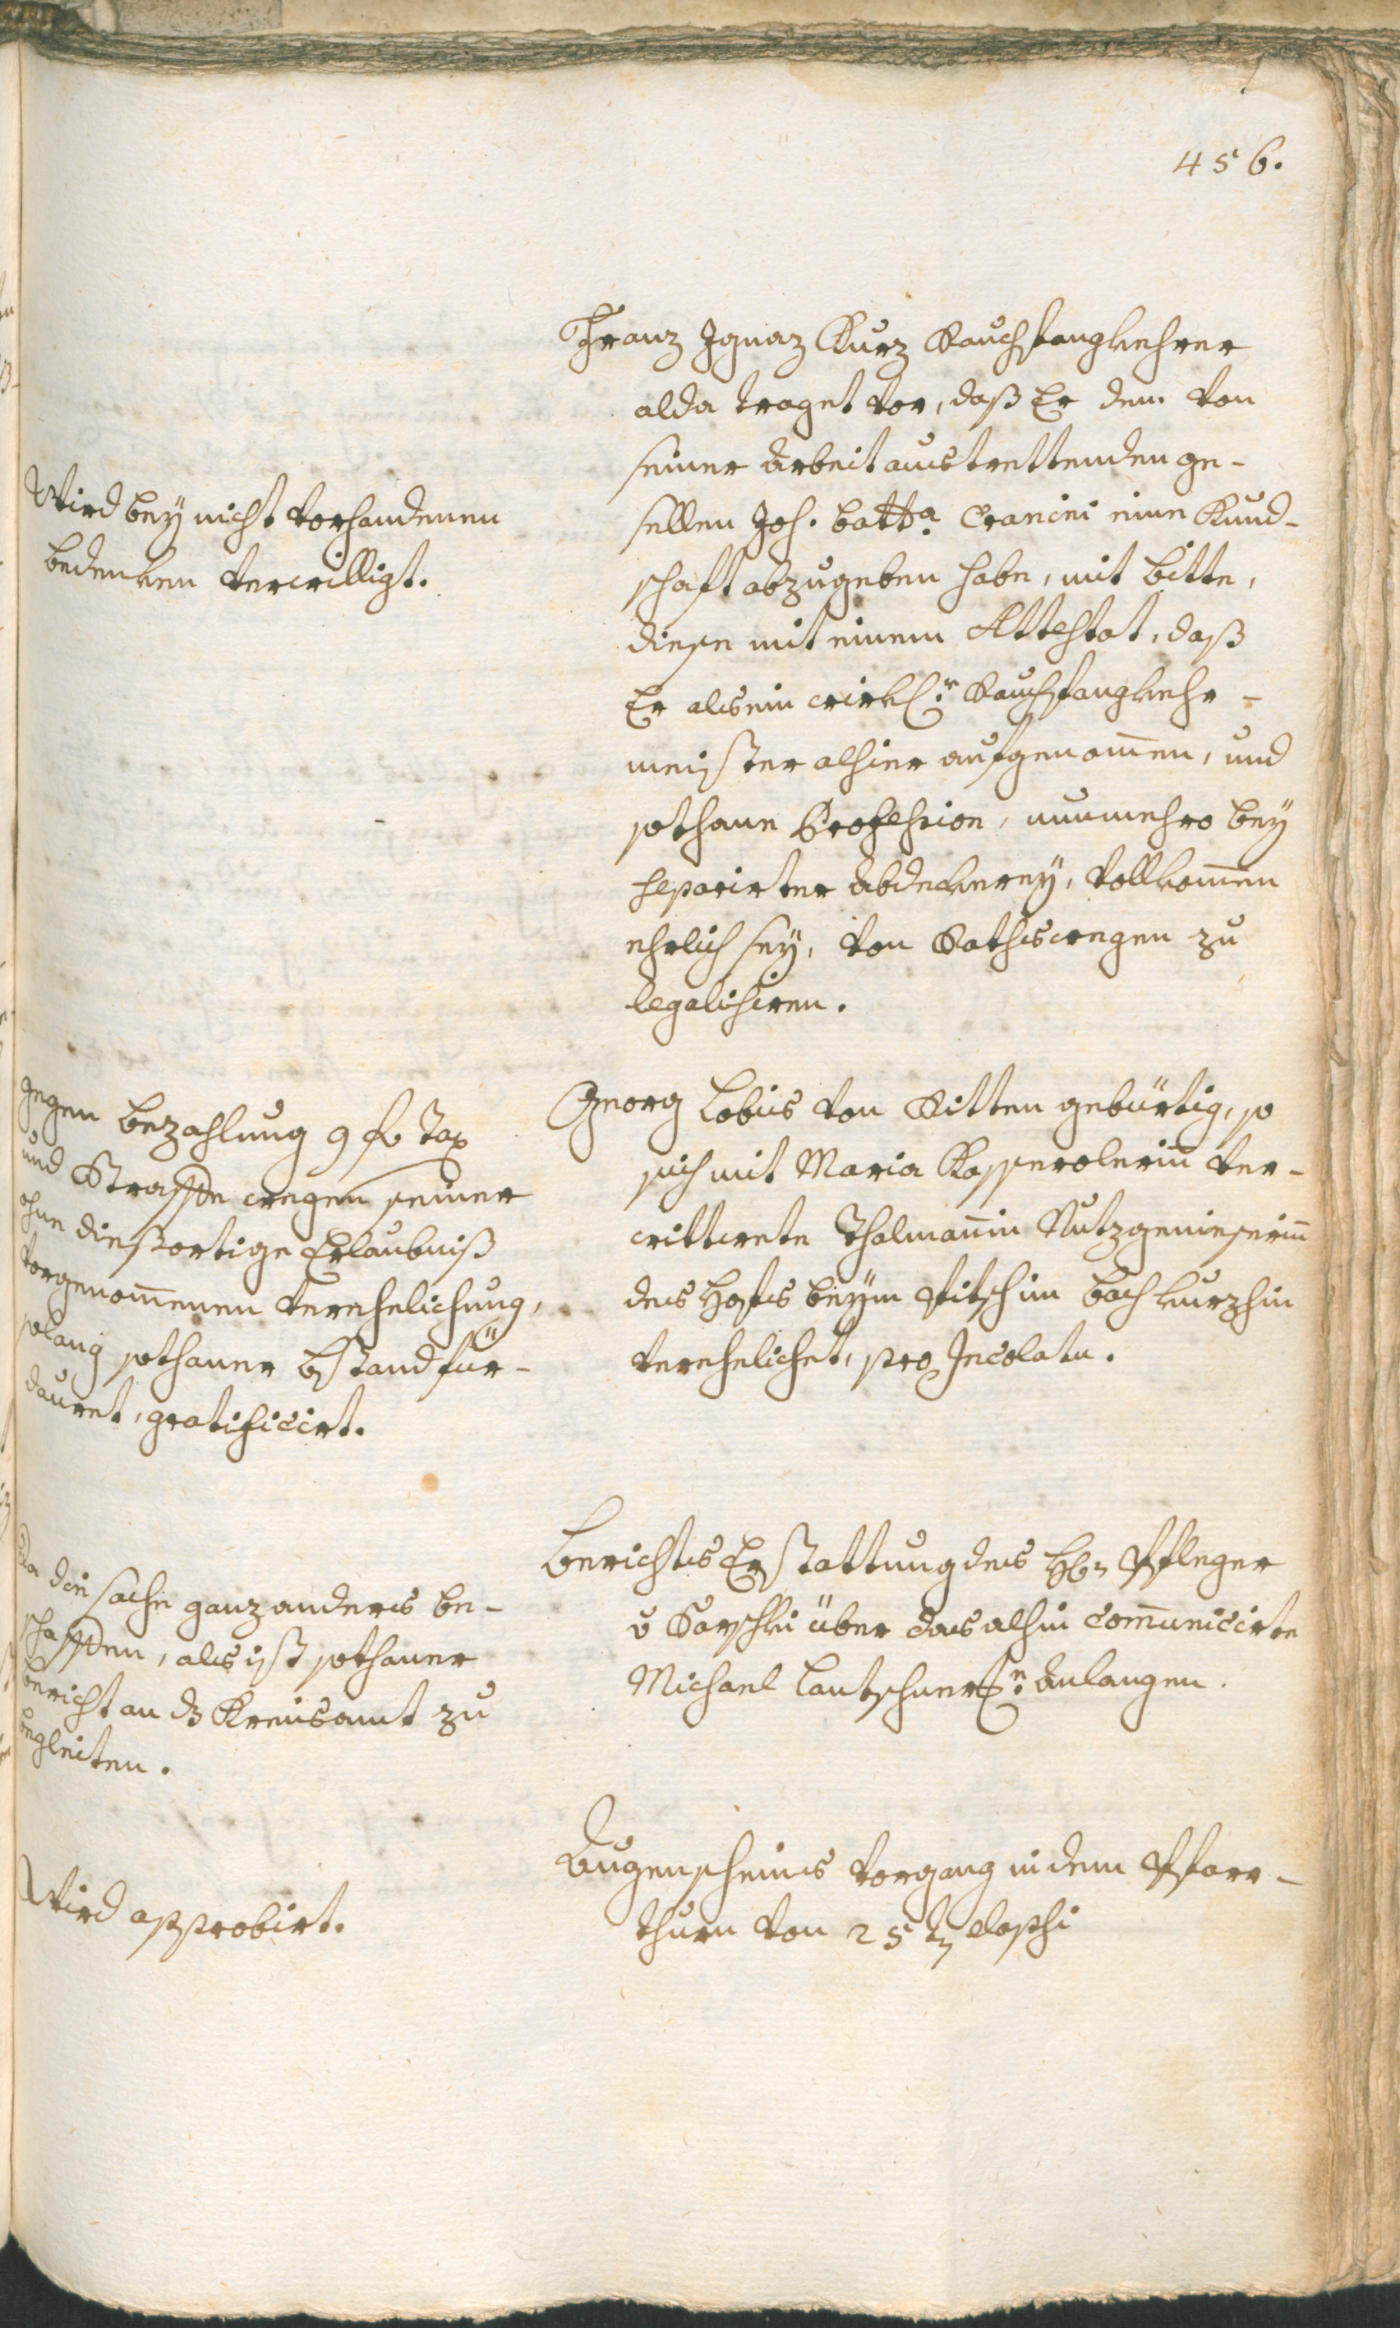 456.
Franz Ignaz Kurz Rauchfangkehrer
alda traget vor, daß Er dem von
seiner Arbeit austrettenden ge-
sellen Joh. Batta. Crancini eine Kund-
schaft abzugeben habe, mit bitte,
diese mit einem Attestat, daß
Er als ein wirkl:r Rauchfangkehr-
meister alhier aufgenom̅en, und
sothane Profession, nunmehro bey
separirter Abdekerey, vollkom̅en
ehrlich sey, von Rathswegen zu
legalisiren.
Wird bey nicht vorhandenen
bedenken verwilligt.
Georg Lobis von Ritten gebürtig, so
sich mit Maria Kasserolerin̅ ver-
wittwete Thalman̅in Nutzgenieserin̅
des Hofs beym Fitsch im bach kurzhin
verehelichet, pro Incolatu.
gegen bezahlung 9 f Tax
und Straffe wegen seiner
ohne dießortige Erlaubniß
vorgenom̅enen verehelichung,
solang sothaner bstand für-
dauret, gratificirt.
Berichts Erstattung des H. Pfleger
v Sarnthein über das alhin com̅unicirte
Michael Lantschner: Anlangen.
Da die sache ganz anders be-
schaffen, als ist sothaner
bericht an dz Kreisamt zu
begleiten.
Augenscheins Vorgang in dem Pfarr-
thurn von 25t elapsi
Wird approbirt.